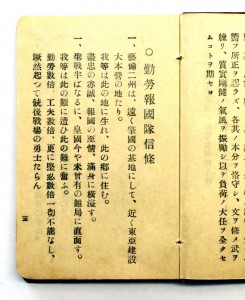 嚮フ所正ヲ謬ラズ、各其ノ本分ヲ恪守シ、文ヲ修メ武ヲ
練リ、質實剛健ノ氣風ヲ振勵シ以テ負荷ノ大任ヲ全クセ
ムコトヲ期セヨ
○勤勞報國隊信條
一、藝備二州は、遠く肇國の基地にして、近く東亞建設
大本營の地たり。
我等は此の地に生れ、此の鄕に住む。
盡忠の赤誠、報國の至情、滿身に橫溢す。
一、聖戰半ばなるに、皇國今や未曾有の難局に直面す。
我等は此の難に遭ひ此の難に奮ふ。
勤勞數倍、工夫數倍、更に堅忍數倍一物不能なし、
蹶然起つて銃後戰場の勇士たらん